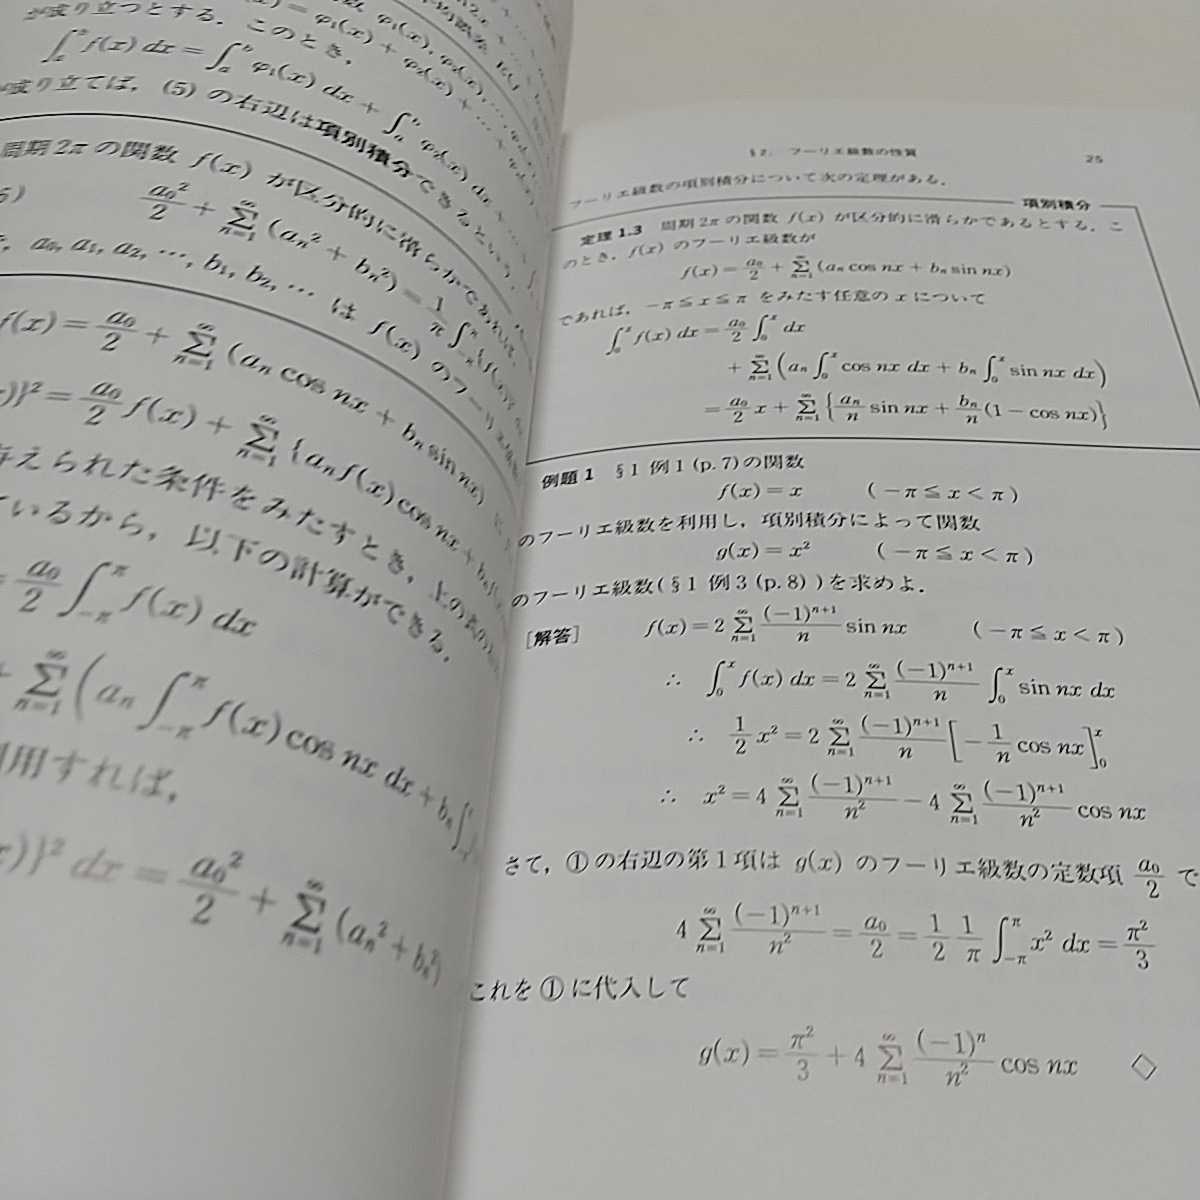 が成り立つとする．このとき，
∫_a^b f(x) dx = ∫_a^b φ₁(x) dx + ∫_a^b φ₂(x) dx + …
が成り立てば，(5) の右辺は項別積分できるという．
周期 2π の関数 f(x) が区分的に滑らかであれば，
a₀²/2 + Σ_{n=1}^∞ (aₙ² + bₙ²) = 1/π ∫_{-π}^π {f(x)
a₀, a₁, a₂, …, b₁, b₂, … は f(x) のフーリエ
f(x) = a₀/2 + Σ_{n=1}^∞ (aₙ cos nx + bₙ sin nx)
)}² = a₀/2 f(x) + Σ_{n=1}^∞ {aₙ f(x) cos nx + bₙ f(x)
与えられた条件をみたすとき，上の式の
ているから，以下の計算ができる．
= a₀/2 ∫_{-π}^π f(x) dx
+ Σ_{n=1}^∞ (aₙ ∫_{-π}^π f(x) cos nx dx + bₙ ∫
利用すれば，
)}² dx = a₀²/2 + Σ_{n=1}^∞ (aₙ² + bₙ²)
§2. フーリエ級数の性質 25
フーリエ級数の項別積分について次の定理がある．
項別積分
定理 1.3 周期 2π の関数 f(x) が区分的に滑らかであるとする．こ
のとき，f(x) のフーリエ級数が
f(x) = a₀/2 + Σ_{n=1}^∞ (aₙ cos nx + bₙ sin nx)
であれば，−π ≦ x ≦ π をみたす任意の x について
∫₀^x f(x) dx = a₀/2 ∫₀^x dx
+ Σ_{n=1}^∞ (aₙ ∫₀^x cos nx dx + bₙ ∫₀^x sin nx dx)
= a₀/2 x + Σ_{n=1}^∞ {aₙ/n sin nx + bₙ/n (1 − cos nx)}
例題 1 §1 例1 (p. 7) の関数
f(x) = x (−π ≦ x < π)
のフーリエ級数を利用し，項別積分によって関数
g(x) = x² (−π ≦ x < π)
のフーリエ級数(§1 例3 (p. 8))を求めよ．
[解答] f(x) = 2 Σ_{n=1}^∞ (−1)^{n+1}/n sin nx (−π ≦ x < π)
∴ ∫₀^x f(x) dx = 2 Σ_{n=1}^∞ (−1)^{n+1}/n ∫₀^x sin nx dx
∴ 1/2 x² = 2 Σ_{n=1}^∞ (−1)^{n+1}/n [−1/n cos nx]₀^x
∴ x² = 4 Σ_{n=1}^∞ (−1)^{n+1}/n² − 4 Σ_{n=1}^∞ (−1)^{n+1}/n² cos nx
さて，①の右辺の第1項は g(x) のフーリエ級数の定数項 a₀/2 で
4 Σ_{n=1}^∞ (−1)^{n+1}/n² = a₀/2 = 1/2 1/π ∫_{-π}^π x² dx = π²/3
これを①に代入して
g(x) = π²/3 + 4 Σ_{n=1}^∞ (−1)^n/n² cos nx ◇